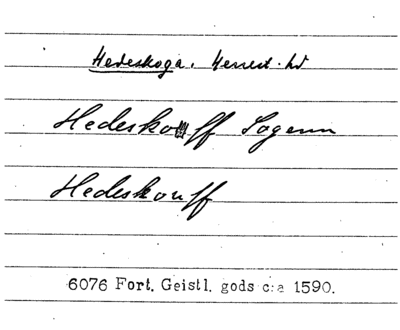 Hedeskoga. Herrest. hd
Hedeskouff Sogenn
Hedeskouff
6076 Fort. Geistl. gods c:a 1590.